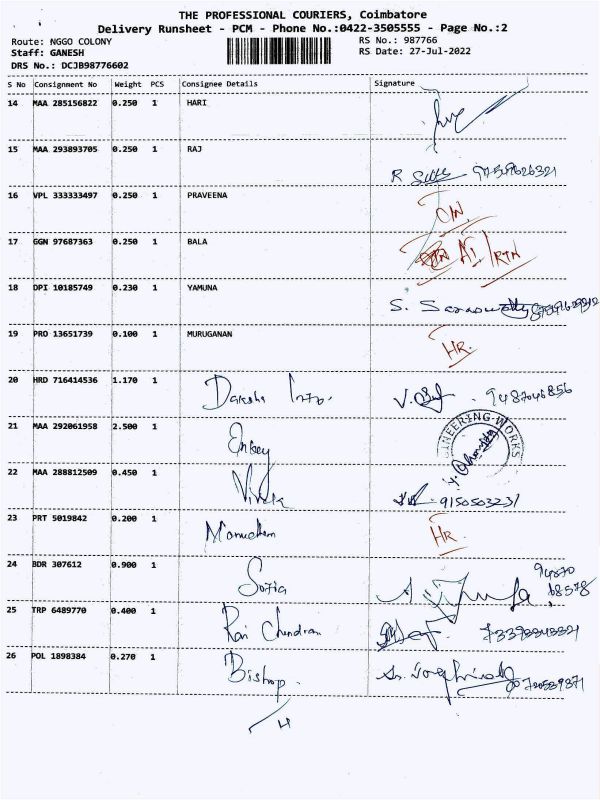 THE PROFESSIONAL COURIERS, Coimbatore
Delivery Runsheet - PCM - Phone No.:0422-3505555 - Page No.:2
Route: NGGO COLONY RS No.: 987766
Staff: GANESH RS Date: 27-Jul-2022
DRS No.: DCJB98776602
S No Consignment No Weight PCS Consignee Details Signature
14 MAA 285156822 0.250 1 HARI
15 MAA 293893705 0.250 1 RAJ
R
16 VPL 333333497 0.250 1 PRAVEENA
17 GGN 97687363 0.250 1 BALA
RTN
18 DPI 10185749 0.230 1 YAMUNA
S.
19 PRO 13651739 0.100 1 MURUGANAN
HR.
20 HRD 716414536 1.170 1 Daksha Info. 9487046856
21 MAA 292061958 2.500 1
NEERING WORKS
22 MAA 288812509 0.450 1 9150503231
23 PRT 5019842 0.200 1 HR.
24 BDR 307612 0.900 1 Sofia
25 TRP 6489770 0.400 1 Rai Chandran
26 POL 1898384 0.270 1 Bishop.